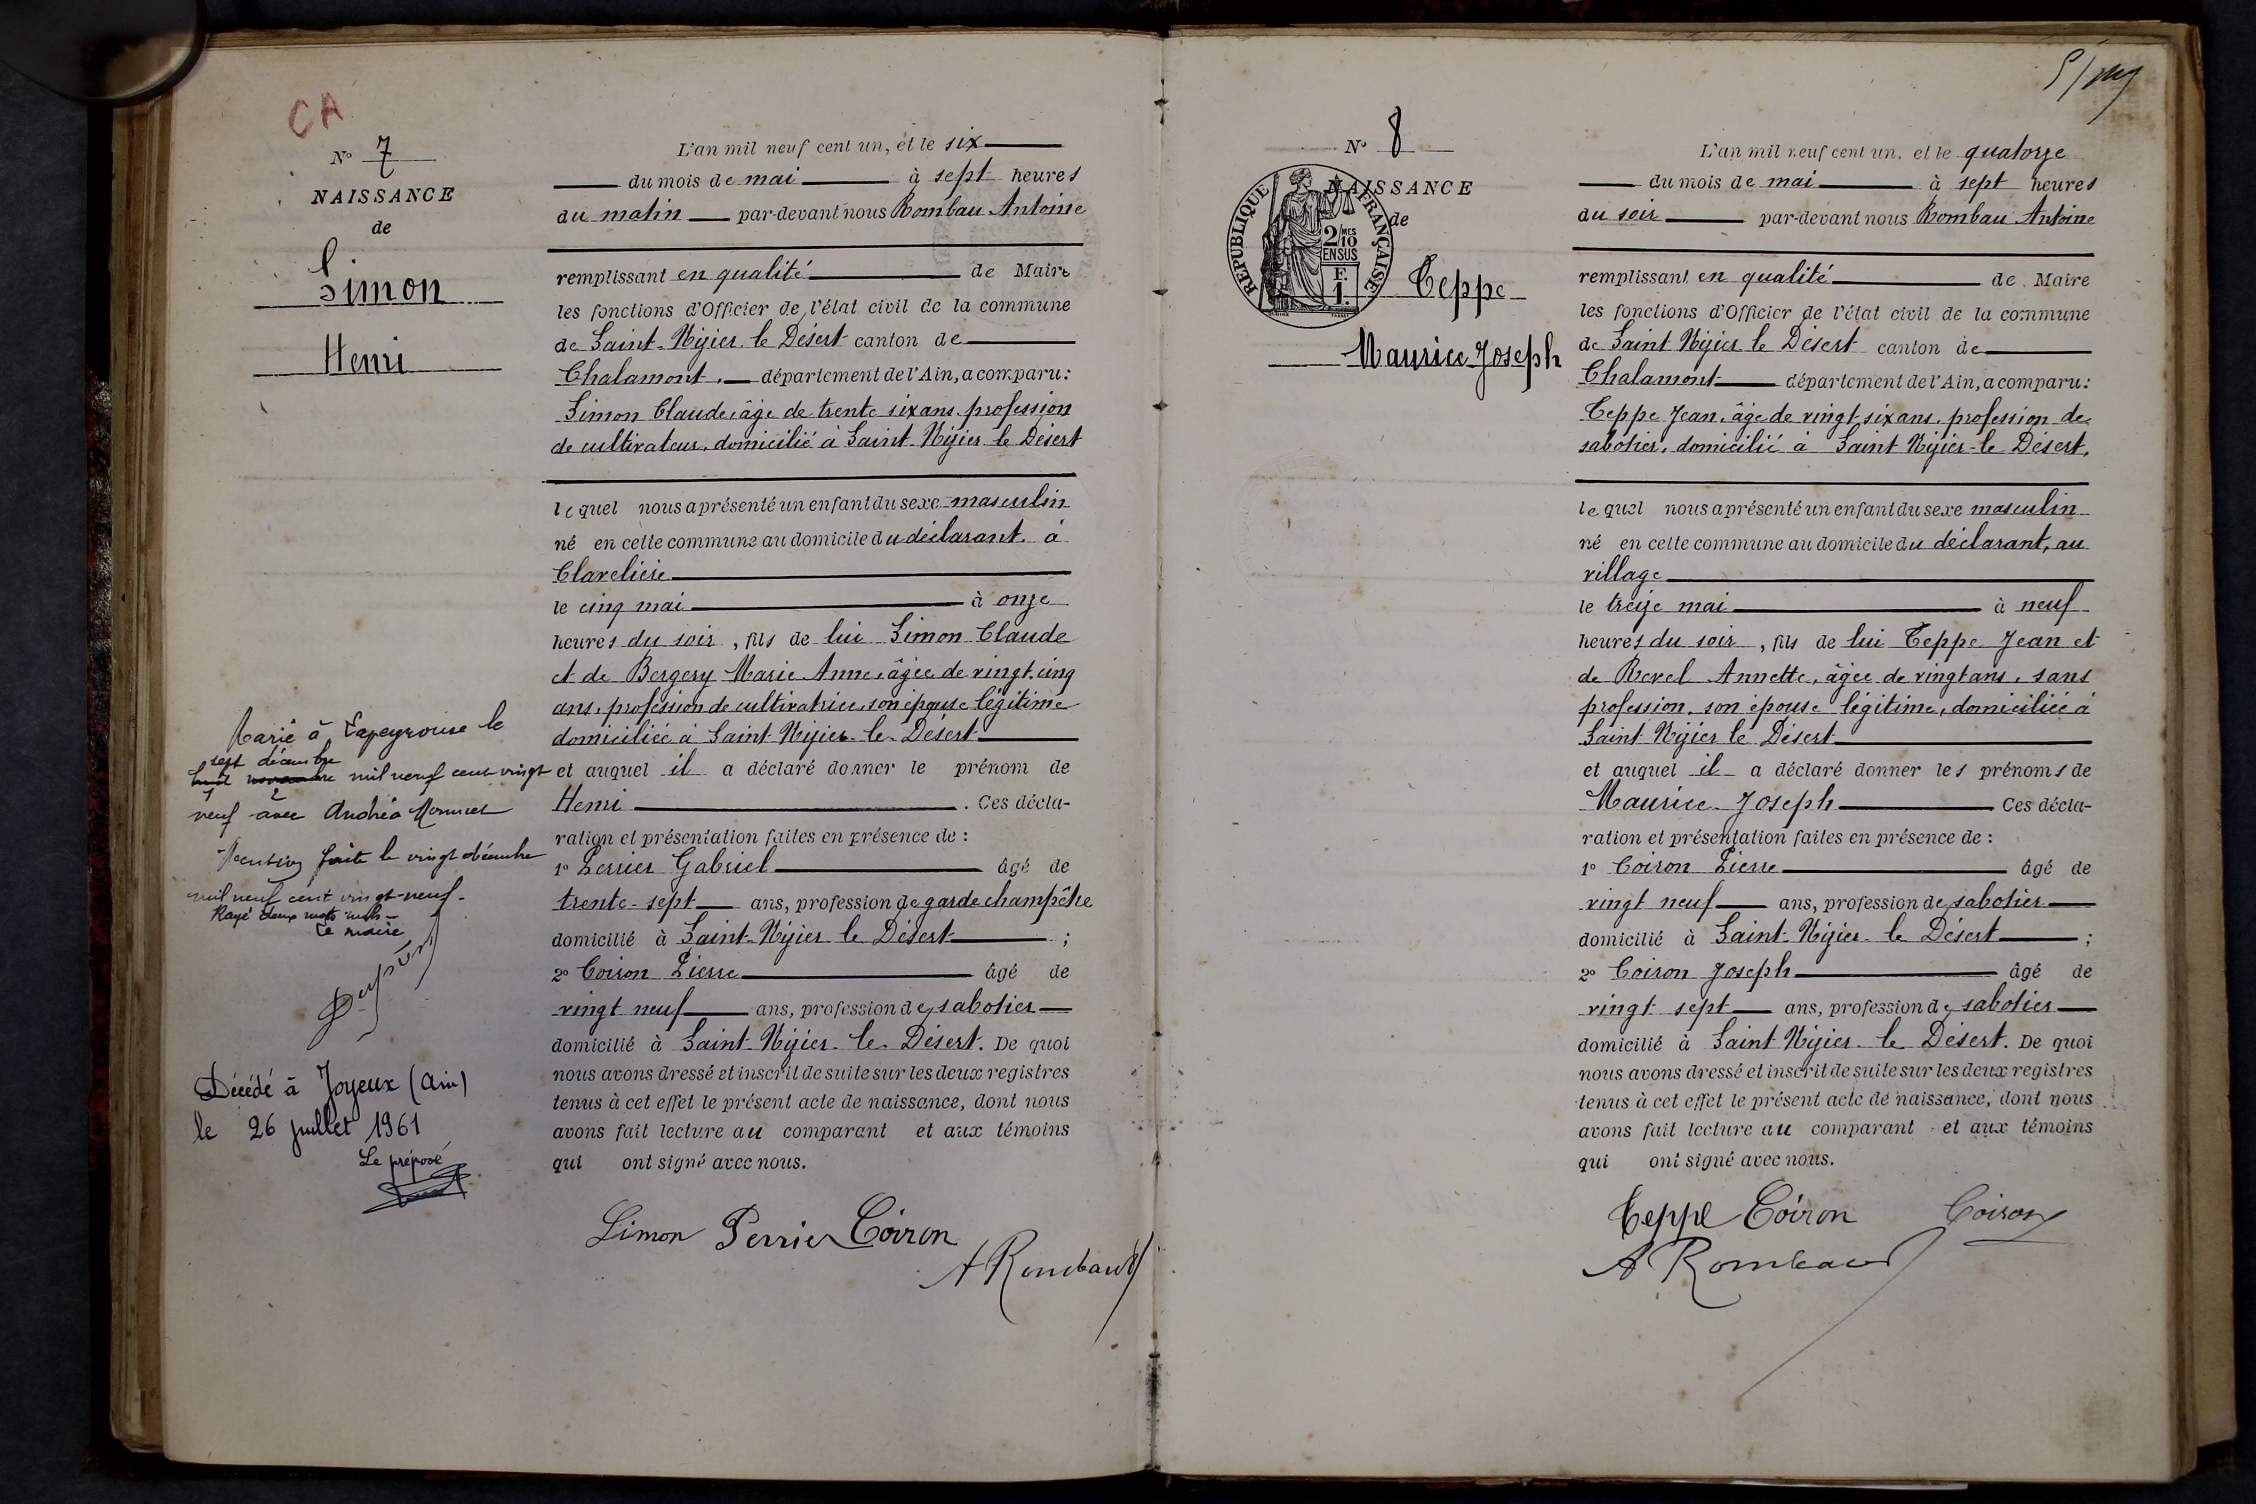 CA
N° 7
NAISSANCE
de
Simon
Henri
L'an mil neuf cent un, et le six
du mois de mai à sept heures
du matin par-devant nous Rombau Antoine
remplissant en qualité de Maire
les fonctions d'Officier de l'état civil de la commune
de Saint-Nizier le Désert canton de
Chalamont, département de l'Ain, a comparu:
Simon Claude, âgé de trente six ans, profession
de cultivateur, domicilié à Saint-Nizier-le Désert
lequel nous a présenté un enfant du sexe masculin
né en cette commune au domicile du déclarant, à
Clavelière
le cinq mai à onze
heures du soir, fils de lui Simon Claude
et de Bergery Marie Anne, âgée de vingt-cinq
ans, profession de cultivatrice, son épouse légitime
domiciliée à Saint-Nizier-le-Désert
et auquel il a déclaré donner le prénom de
Henri. Ces décla-
ration et présentation faites en présence de :
1° Perrier Gabriel âgé de
trente-sept ans, profession de garde champêtre
domicilié à Saint-Nizier le Désert ;
2° Coiron Pierre âgé de
vingt neuf ans, profession de sabotier
domicilié à Saint-Nizier-le-Désert. De quoi
nous avons dressé et inscrit de suite sur les deux registres
tenus à cet effet le présent acte de naissance, dont nous
avons fait lecture au comparant et aux témoins
qui ont signé avec nous.
Simon Perrier Coiron
A Rombaud
Marié à Lapeyrouse le
sept décembre
huit novembre mil neuf cent vingt
neuf avec Andréa
Mention faite le vingt décembre
mil neuf cent vingt-neuf.
Rayé deux mots nuls-
Le maire
Décédé à Joyeux (Ain)
le 26 juillet 1961
Le préposé
N° 8
NAISSANCE
de
RÉPUBLIQUE FRANÇAISE
2/10 MES
EN SUS
F.
1.
Teppe
Maurice Joseph
L'an mil neuf cent un, et le quatorze
du mois de mai à sept heures
du soir par-devant nous Rombau Antoine
remplissant en qualité de Maire
les fonctions d'Officier de l'état civil de la commune
de Saint Nizier le Désert canton de
Chalamont département de l'Ain, a comparu:
Teppe Jean, âgé de vingt six ans, profession de
sabotier, domicilié à Saint Nizier-le Désert,
lequel nous a présenté un enfant du sexe masculin
né en cette commune au domicile du déclarant, au
village
le treize mai à neuf
heures du soir, fils de lui Teppe Jean et
de Revel Annette, âgée de vingt ans, sans
profession, son épouse légitime, domiciliée à
Saint Nizier le Désert
et auquel il a déclaré donner les prénoms de
Maurice Joseph Ces décla-
ration et présentation faites en présence de :
1° Coiron Pierre âgé de
vingt neuf ans, profession de sabotier
domicilié à Saint-Nizier-le Désert ;
2° Coiron Joseph âgé de
vingt sept ans, profession de sabotier
domicilié à Saint Nizier-le Désert. De quoi
nous avons dressé et inscrit de suite sur les deux registres
tenus à cet effet le présent acte de naissance, dont nous
avons fait lecture au comparant et aux témoins
qui ont signé avec nous.
Teppe Coiron Coiron
A Rombaud